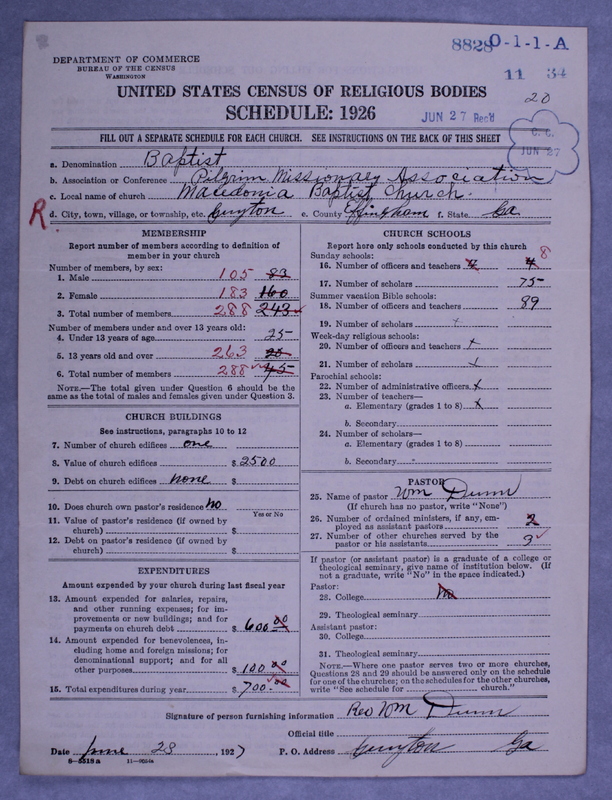 8828 0-1-1-A
DEPARTMENT OF COMMERCE
BUREAU OF THE CENSUS
WASHINGTON
11 34
UNITED STATES CENSUS OF RELIGIOUS BODIES
20
SCHEDULE: 1926
JUN 27 Rec'd
C. C.
JUN 27
FILL OUT A SEPARATE SCHEDULE FOR EACH CHURCH. SEE INSTRUCTIONS ON THE BACK OF THIS SHEET
a. Denomination Baptist
b. Association or Conference Pilgrim Missionary Association
c. Local name of church Macedonia Baptist Church.
R d. City, town, village, or township, etc. Guyton e. County Effingham f. State Ga
MEMBERSHIP
Report number of members according to definition of
member in your church
Number of members, by sex:
1. Male 105 83
2. Female 183 160
3. Total number of members 288 243
Number of members under and over 13 years old:
4. Under 13 years of age 25
5. 13 years old and over 263 20
6. Total number of members 288 45
NOTE.—The total given under Question 6 should be
the same as the total of males and females given under Question 3.
CHURCH BUILDINGS
See instructions, paragraphs 10 to 12
7. Number of church edifices one
8. Value of church edifices $ 2500
9. Debt on church edifices none $
10. Does church own pastor's residence No
Yes or No
11. Value of pastor's residence (if owned by
church) $
12. Debt on pastor's residence (if owned by
church) $
EXPENDITURES
Amount expended by your church during last fiscal year
13. Amount expended for salaries, repairs,
and other running expenses; for im-
provements or new buildings; and for
payments on church debt $ 600.00
14. Amount expended for benevolences, in-
cluding home and foreign missions; for
denominational support; and for all
other purposes $ 100.00
15. Total expenditures during year $ 700.00
CHURCH SCHOOLS
Report here only schools conducted by this church
Sunday schools:
16. Number of officers and teachers 4 4 8
17. Number of scholars 75
Summer vacation Bible schools:
18. Number of officers and teachers 89
19. Number of scholars x
Week-day religious schools:
20. Number of officers and teachers x
21. Number of scholars x
Parochial schools:
22. Number of administrative officers x
23. Number of teachers—
a. Elementary (grades 1 to 8) x
b. Secondary
24. Number of scholars—
a. Elementary (grades 1 to 8)
b. Secondary
PASTOR
25. Name of pastor Wm Dunn
(If church has no pastor, write "None")
26. Number of ordained ministers, if any, em-
ployed as assistant pastors 2
27. Number of other churches served by the
pastor or his assistants 3
If pastor (or assistant pastor) is a graduate of a college or
theological seminary, give name of institution below. (If
not a graduate, write "No" in the space indicated.)
Pastor:
28. College No
29. Theological seminary
Assistant pastor:
30. College
31. Theological seminary
NOTE.—Where one pastor serves two or more churches,
Questions 28 and 29 should be answered only on the schedule
for one of the churches; on the schedules for the other churches,
write "See schedule for church."
Signature of person furnishing information Rev Wm Dunn
Official title
Date June 23, 1927 P. O. Address Guyton Ga
8—5518 a